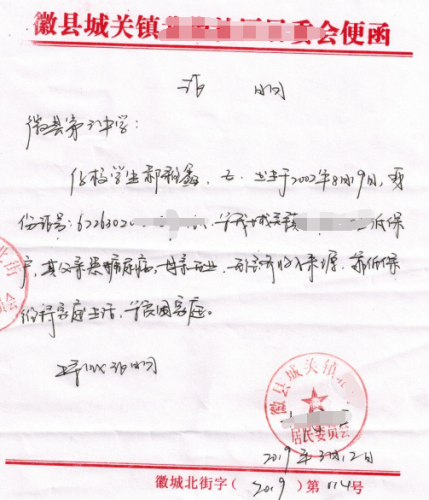 徽县城关镇 居民委会便函
证明
徽县第三中学：
你校学生郝 鑫，女，出生于2002年8月19日，身
份证号：6226302 ，为我城关镇 低保
户，其父亲患糖尿病，母亲无业，无经济收入来源，靠低保
维持家庭生活，为贫困家庭。
特此证明
徽县城关镇
居民委员会
2019年3月12日
徽城北街字（2019）第014号
北街
员会